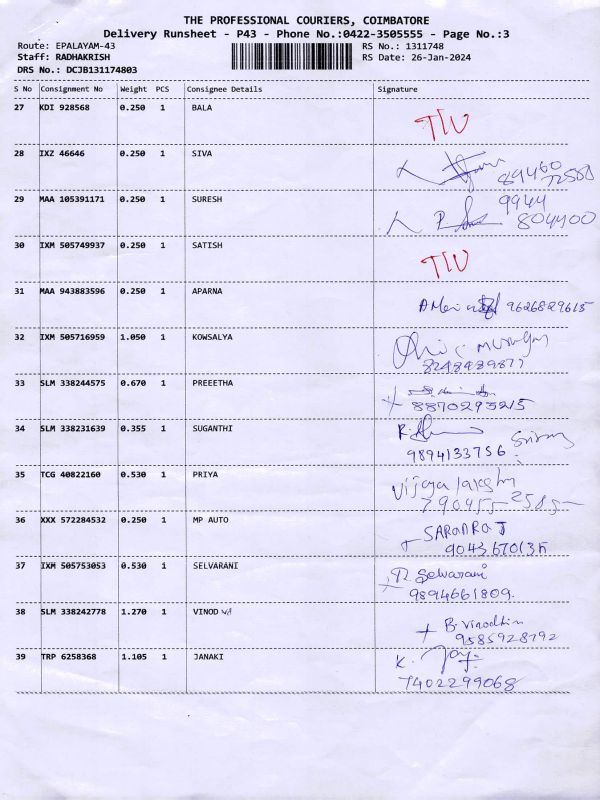 THE PROFESSIONAL COURIERS, COIMBATORE
Delivery Runsheet - P43 - Phone No.:0422-3505555 - Page No.:3
Route: EPALAYAM-43 RS No.: 1311748
Staff: RADHAKRISH RS Date: 26-Jan-2024
DRS No.: DCJB131174803
S No Consignment No Weight PCS Consignee Details Signature
27 KDI 928568 0.250 1 BALA
28 IXZ 46646 0.250 1 SIVA
89460
72580
29 MAA 105391171 0.250 1 SURESH
9944
804400
30 IXM 505749937 0.250 1 SATISH
31 MAA 943883596 0.250 1 APARNA
9626829615
32 IXM 505716959 1.050 1 KOWSALYA
8248489877
33 SLM 338244575 0.670 1 PREEETHA
8870295215
34 SLM 338231639 0.355 1 SUGANTHI
9894133756
35 TCG 40822160 0.530 1 PRIYA
Vijaya lakshmi
36 XXX 572284532 0.250 1 MP AUTO
SARANRAJ
37 IXM 505753053 0.530 1 SELVARANI
Selvarani
9894661809.
38 SLM 338242778 1.270 1 VINOD
B. Vinodhin
9585928792
39 TRP 6258368 1.105 1 JANAKI
K.
7402299068